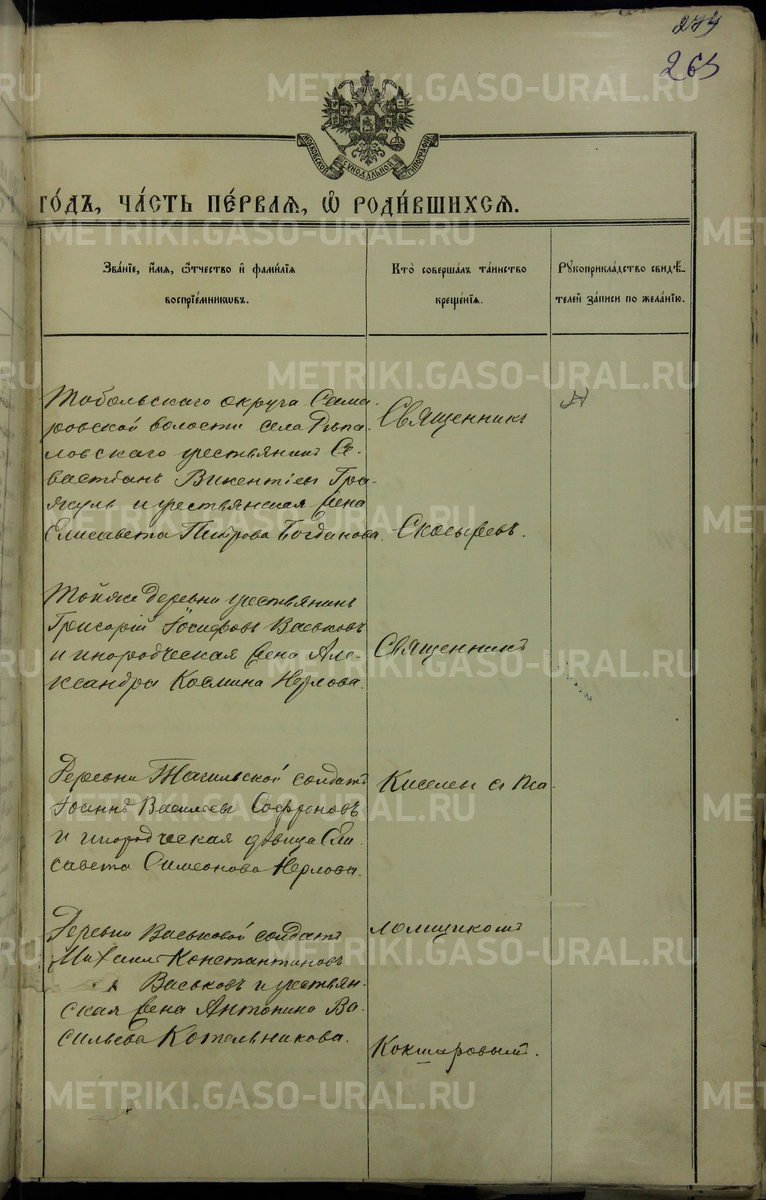 265
МОСКОВСКОЙ СѴНОДАЛЬНОЙ ТИПОГРАФІИ
ГО́ДЪ, ЧА́СТЬ ПЕ́РВАЯ, Ѡ РОДИ́ВШИХСЯ.
Зва́нїе, и́мя, ѻ́тчество и҆ фами́лїя
воспрїе́мниковъ.
Кто̀ соверша́лъ та́инство
креще́нїя.
Рꙋкоприкла́дство свидѣ́-
телей за́писи по жела́нїю.
Тобольскаго округа Сама-
ровской волости села
ловскаго крестьянинъ Се-
вастьянъ Викентіевъ
и крестьянская жена
Елисавета Петрова Богданова.
Священникъ
Скосыревъ.
Той же деревни крестьянинъ
Григорій Іосифовъ Васьковъ
и инородческая жена Але-
ксандра Космина Нерлова.
Священникъ
Деревни Тагильской солдатъ
Іоаннъ Васильевъ Софроновъ
и инородческая дѣвица Ели-
савета Симеонова Нерлова.
Киселевъ съ Пса-
Деревни Васьковой солдатъ
Михаилъ Константиновъ
Васьковъ и крестьян-
ская жена Антонина Ва-
сильева Котельникова.
ломщикомъ
Кокшаровымъ.
METRIKI.GASO-URAL.RU